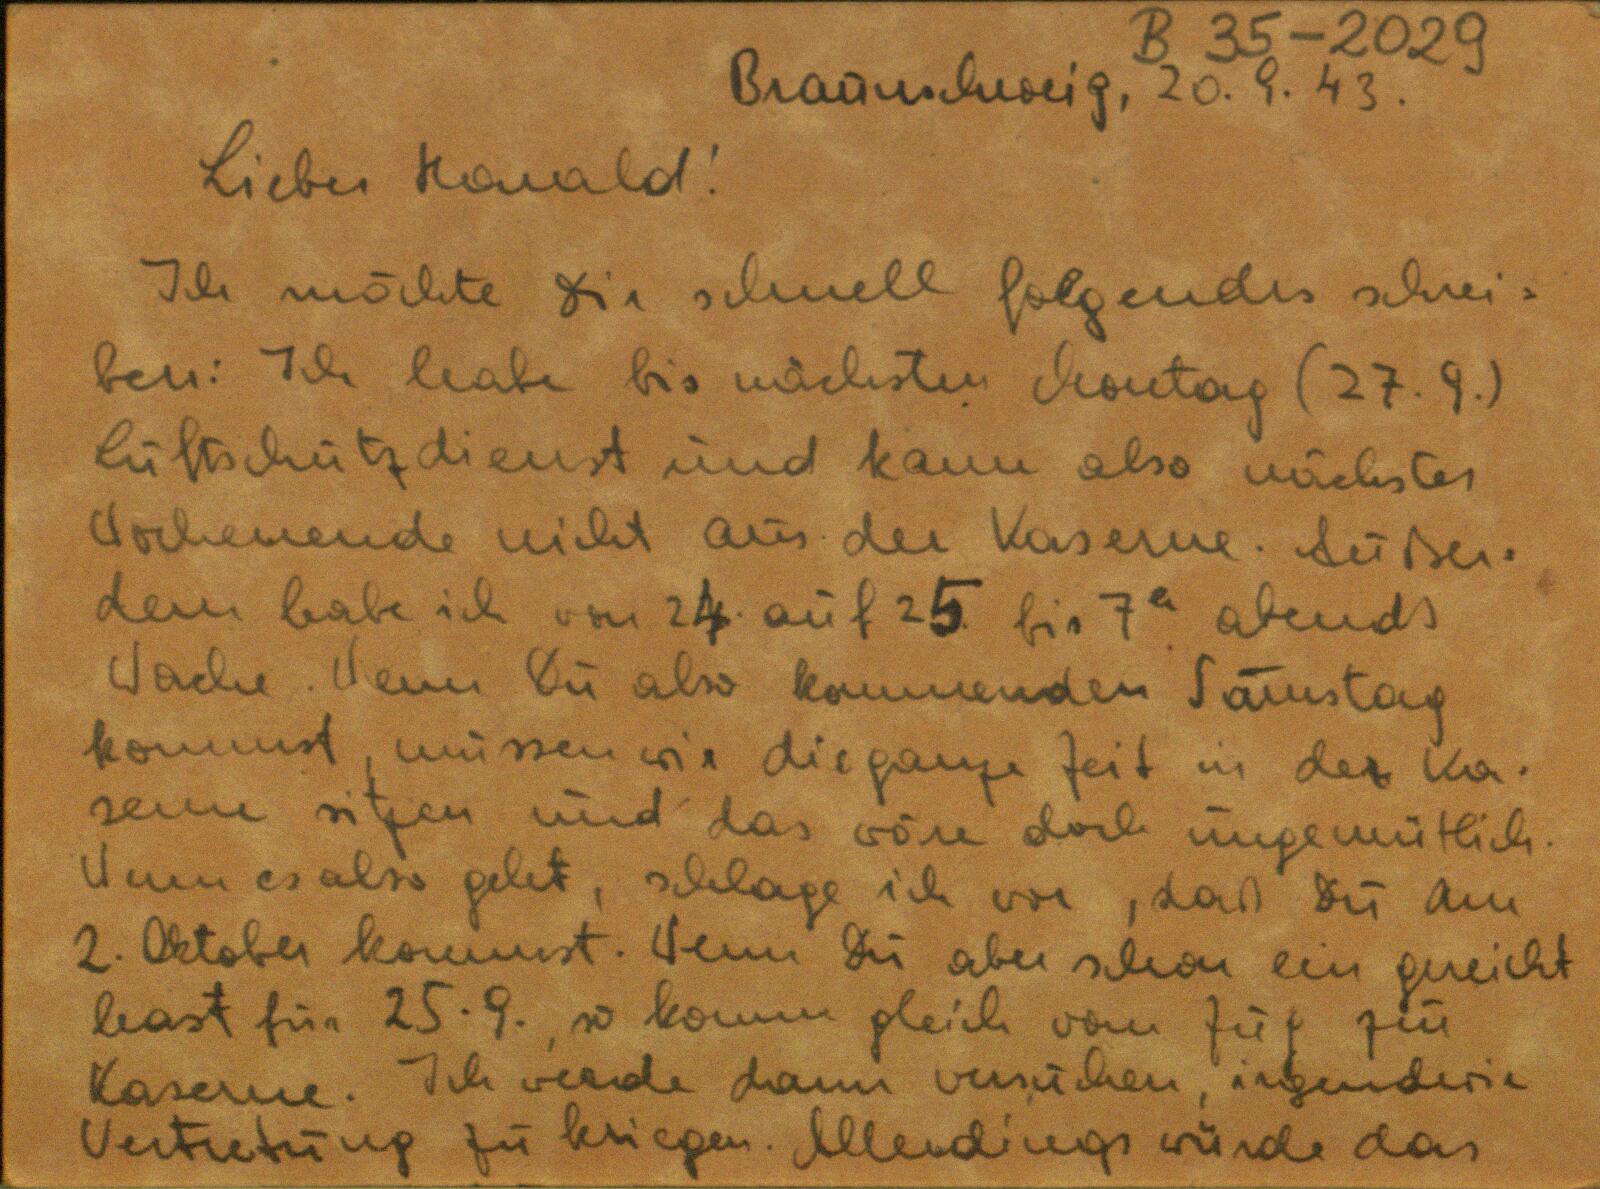 B 35-2029
Braunschweig, 20. 9. 43.
Lieber Harald!
Ich möchte Dir schnell folgendes schrei=
ben: Ich habe bis nächsten Montag (27. 9.)
Luftschutzdienst und kann also nächstes
Wochenende nicht aus der Kaserne. Außer=
dem habe ich von 24. auf 25. bis 7h abends
Wache. Wenn Du also kommenden Samstag
kommst, müssen wir die ganze Zeit in der Ka=
serne sitzen und das wäre doch ungemütlich.
Wenn es also geht, schlage ich vor, daß Du am
2. Oktober kommst. Wenn Du aber schon ein gereicht
hast für 25. 9., so komm gleich vom Zug zur
Kaserne. Ich werde dann versuchen, irgendwie
Vertretung zu kriegen. Allerdings würde das